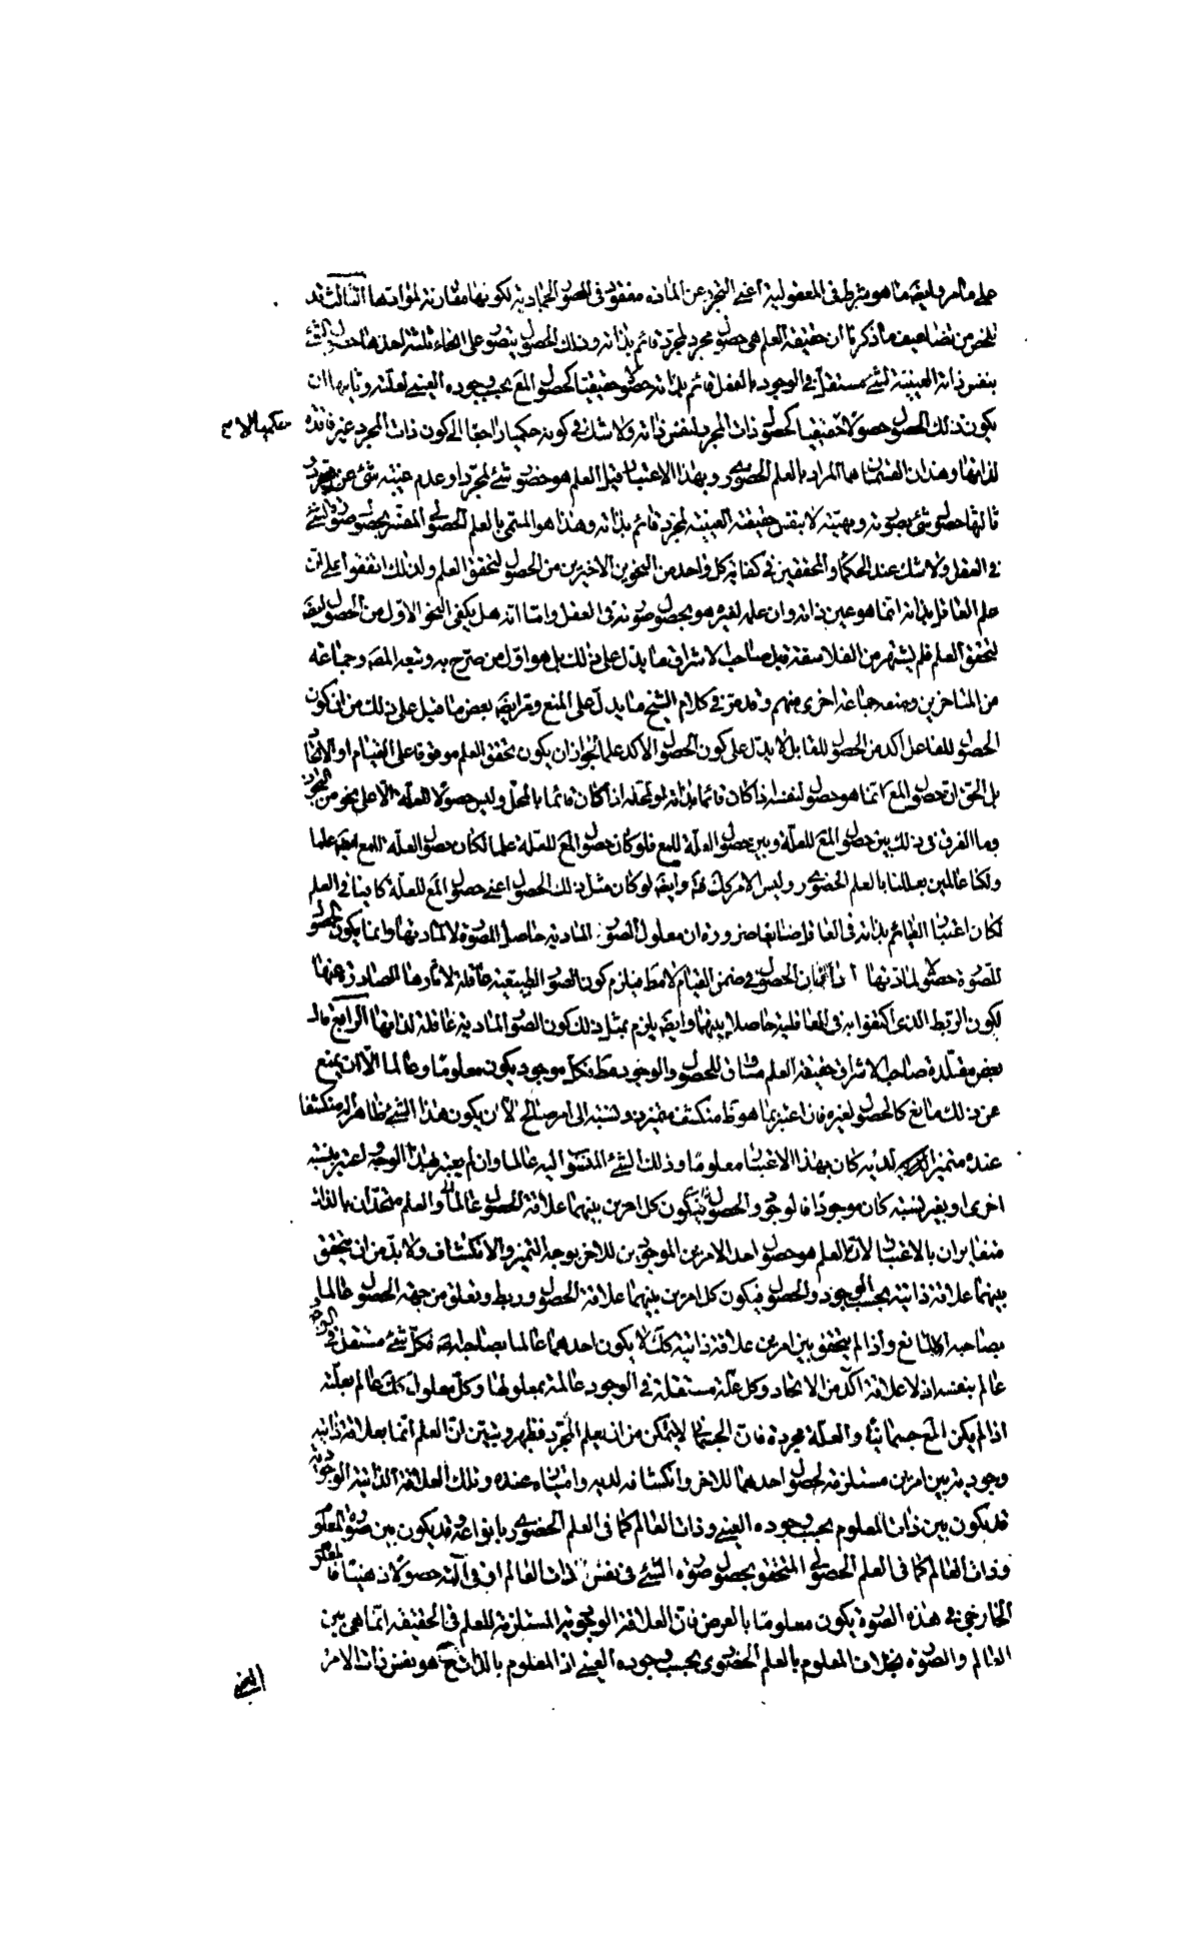 على ما مر وايضا ما هو شرط فى المعقولية اعنى التجرد عن المادة مفقود فى الصور الجمادية لكونها مقارنة لموادها الثالث قد
تلخص من تضاعيف ما ذكرنا ان حقيقة العلم هى حصول مجرد لمجرد قائم بذاته وذلك الحصول يتصور على انحاء ثلثة احدها حصول الشئ
بنفس ذاته العينية لشئ مستقل فى الوجود بالفعل قائم بذاته حصولا حقيقيا كحصول المع بحسب وجوده العينى لعلته وثانيها ان
يكون ذلك الحصول حصولا حقيقيا كحصول ذات المجرد لنفس ذاته ولا شك فى كونه حكميا راجعا الى كون ذات المجرد غير فاقدة
لذاتها وهذان القسمان هما المراد بالعلم الحضورى وبهذا الاعتبار قيل العلم هو حضور شئ لمجرد او عدم غيبته شئ عن مجرد
ثالثها حصول شئ بصورته ومهيته لا بنفس حقيقته العينية لمجرد قائم بذاته وهذا هو المسمى بالعلم الحصولى المفسر بحصول صورة الشئ
فى العقل ولا شك عند الحكماء والمحققين فى كفاية كل واحد من النحوين الاخيرين من الحصول لتحقق العلم ولذلك اتفقوا على ان
علم العاقل بذاته انما هو عين ذاته وان علمه لغيره هو بحصول صورته فى العقل واما انه هل يكفى النحو الاول من الحصول ايضا
لتحقق العلم فلم يشتهر من الفلاسفة قبل صاحب الاشراق ما يدل على ذلك بل هو اول من صرح به وتبعه المص وجماعة
من المتاخرين ومنعه جماعة اخرى منهم وقد مر فى كلام الشيخ ما يدل على المنع ومر ايضا بعض ما قيل على ذلك من ان كون
الحصول للفاعل اكد من الحصول للقابل لا يدل على كون الحصول الاكد علما لجواز ان يكون تحقق العلم موقوفا على القيام او الاتحاد
بل الحق ان حصول المع انما هو حصول لنفسه اذا كان قائما بذاته او لمحله اذا كان قائما بالمحل وليس حصولا للعلة الا على نحو من التجوز
وما الفرق فى ذلك بين حصول المع للعلة وبين حصول العلة للمع فلو كان حصول المع للعلة علما لكان حصول العلة للمع ايضا علما
ولكنا عالمين بعللنا بالعلم الحضورى وليس الامر كذلك وايضا لو كان مثل ذلك الحصول اعنى حصول المع للعلة كافيا فى العلم
لكان اعتبار القيام بذاته فى العاقل ضايعا ضرورة ان معلول الصور المادية حاصل للصورة لا لمادتها وانما يكون الحصول
للصورة حصولا لمادتها اذا كان الحصول فى ضمن القيام لا مط فيلزم كون الصور الطبيعية عاقلة لاثارها الصادرة عنها
لكون الربط الذى اكتفوا به فى العاقلية حاصلا بينهما وايضا يلزم بمثل ذلك كون الصور المادية عاقلة لذاتها الرابع قال
بعض مقلدة صاحب الاشراق حقيقة العلم مساوق للحصول والوجود مط فكل موجود يكون معلوما وعالما الا ان يمنع
عن ذلك مانع كالحصول لغيره فان اعتبر بما هو مط منكشف متميز ونسبته الى امر صالح لان يكون هذا الشئ ظاهرا له منكشفا
عنده متميزا لديه كان بهذا الاعتبار معلوما وذلك الشئ المنسوب اليه عالما وان لم يعتبر هذا الوجه واعتبر بنسبة
اخرى او بغير نسبة كان موجودا فالوجود والحصول فيكون كل امرين بينهما علاقة الحصول عالما والعلم متحدان بالذات
متغايران بالاعتبار لان العلم هو حصول احد الامرين الموجودين للاخر بوجه التميز والانكشاف ولا بد من ان يتحقق
بينهما علاقة ذاتية بحسب الوجود والحصول فيكون كل امرين بينهما علاقة الحصول وربط وتعلق من جهة الحصول عالما
بصاحبه الا لمانع واذا لم يتحقق بين امرين علاقة ذاتية كذلك لا يكون احدهما عالما بصاحبه فكل شئ مستقل فى الوجود
عالم بنفسه اذ لا علاقة اكد من الاتحاد وكل علة مستقلة فى الوجود عالمة بمعلولها وكل معلول كذلك عالم بعلته
اذا لم يكن المع جسمانيا والعلة مجردة فان الجسمانى لا يتمكن من ان يعلم المجرد فظهر وتبين ان العلم انما بعلاقة ذاتية
وجودية بين امرين مستلزمة لحصول احدهما للاخر وانكشافه لديه وامتيازه عنده وتلك العلاقة الذاتية الوجودية
قد يكون بين ذات المعلوم بحسب وجوده العينى وذات العالم كما فى العلم الحضورى بانواعه وقد يكون بين صورة المعلوم
وذات العالم كما فى العلم الحصولى المتحقق بحصول صورة الشئ فى نفس ذات العالم او فى آلته حصولا ذهنيا فالمعلوم
الخارجى فى هذه الصورة يكون معلوما بالعرض فان العلاقة الوجودية المستلزمة للعلم فى الحقيقة انما هى بين
العالم والصورة بخلاف المعلوم بالعلم الحضورى بحسب وجوده العينى اذ المعلوم بالذات ح هو نفس ذات الامر